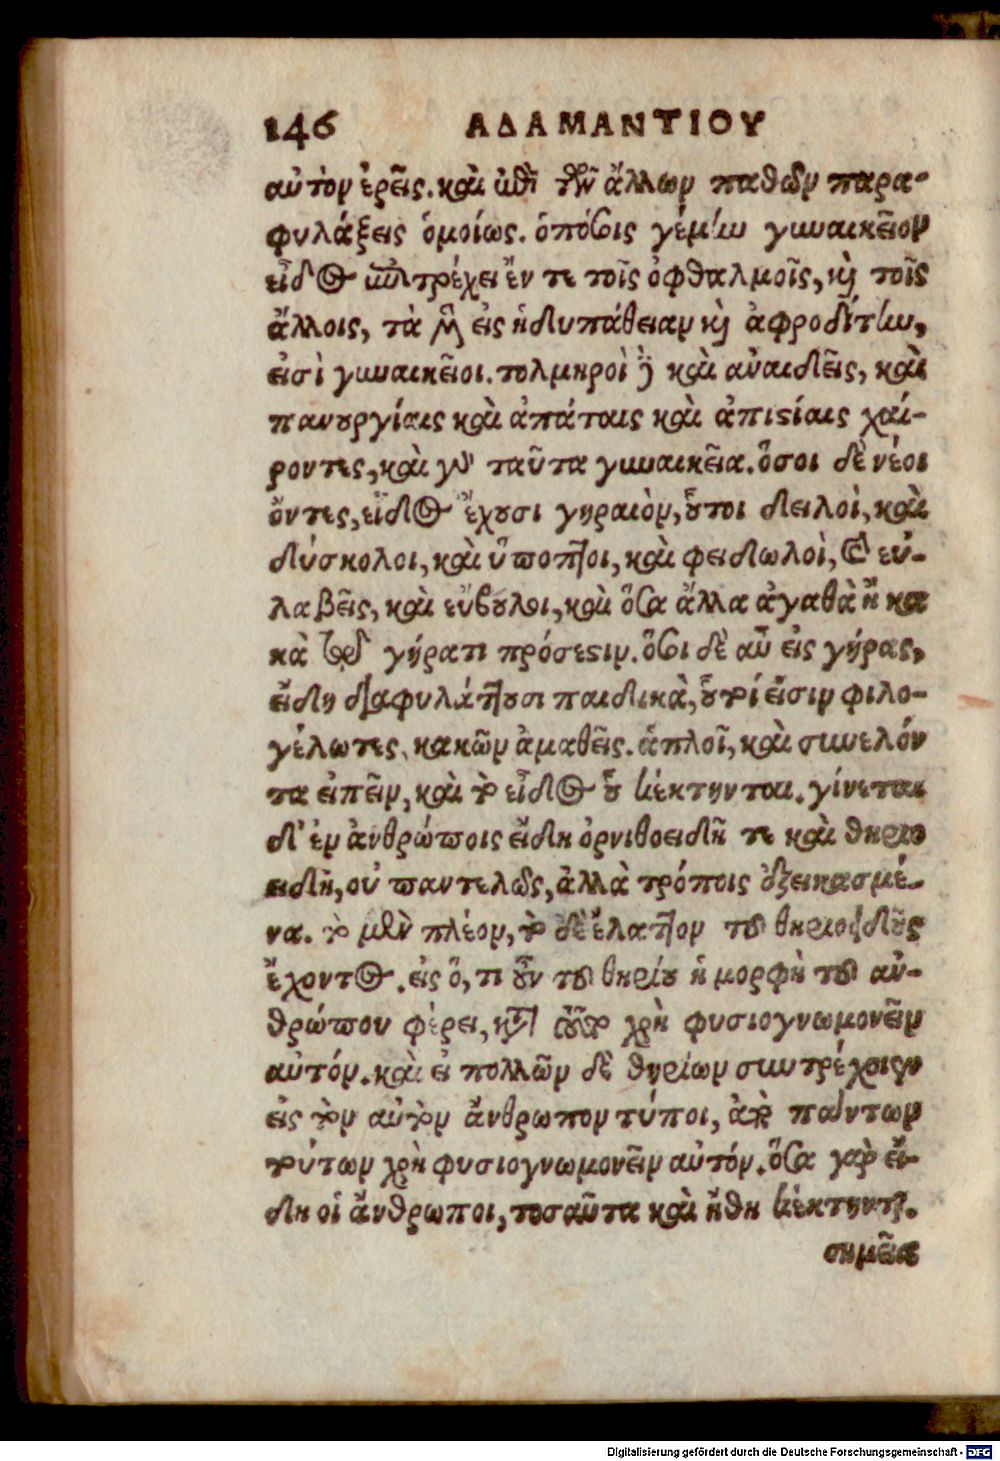 146 ΑΔΑΜΑΝΤΙΟΥ
αὐτὸν ἐρεῖς. καὶ ἐπὶ τῶν ἄλλων παθῶν παρα-
φυλάξεις ὁμοίως. ὁπόσοις γέμην γυναικεῖον
εἶδος ἐπιτρέχει ἔν τε τοῖς ὀφθαλμοῖς, καὶ τοῖς
ἄλλοις, τὰ μὲν εἰς ἡδυπάθειαν καὶ ἀφροδίτην,
εἰσὶ γυναικεῖοι. τολμηροὶ δὲ καὶ ἀναιδεῖς, καὶ
πανουργίαις καὶ ἀπάταις καὶ ἀπιστίαις χαί-
ροντες, καὶ γὰρ ταῦτα γυναικεῖα. ὅσοι δὲ νέοι
ὄντες, εἶδος ἔχουσι γηραιὸν, οὗτοι δειλοὶ, καὶ
δύσκολοι, καὶ ὕποπτοι, καὶ φειδωλοὶ, καὶ εὐ-
λαβεῖς, καὶ εὔβουλοι, καὶ ὅσα ἄλλα ἀγαθὰ ἢ κα
κὰ τῷ γήρατι πρόσεστιν. ὅσοι δὲ αὖ εἰς γήρας,
εἴδη διαφυλάττουσι παιδικὰ, οὗτοί εἰσιν φιλο-
γέλωτες, κακῶν ἀμαθεῖς. ἁπλοῖ, καὶ συνελόν
τα εἰπεῖν, καὶ τὸ εἶδος οὗ κέκτηνται. γίνεται
δ' ἐν ἀνθρώποις εἴδη ὀρνιθοειδῆ τε καὶ θηριο
ειδῆ, οὐ παντελῶς, ἀλλὰ τρόποις ἐξεικασμέ-
να. τὸ μὲν πλέον, τὸ δὲ ἔλαττον τοῦ θηριοειδοῦς
ἔχοντος. εἰς ὅ, τι οὖν τοῦ θηρίου ἡ μορφὴ τοῦ ἀν-
θρώπου φέρει, κατὰ τοῦτο χρὴ φυσιογνωμονεῖν
αὐτόν. καὶ εἰ πολλῶν δὲ θηρίων συντρέχοιεν
εἰς τὸν αὐτὸν ἄνθρωπον τύποι, ἀπὸ πάντων
τούτων χρὴ φυσιογνωμονεῖν αὐτόν. ὅσα γὰρ εἴ-
δη οἱ ἄνθρωποι, τοσαῦτα καὶ ἤθη κέκτηνται.
σημεῖα
Digitalisierung gefördert durch die Deutsche Forschungsgemeinschaft - DFG